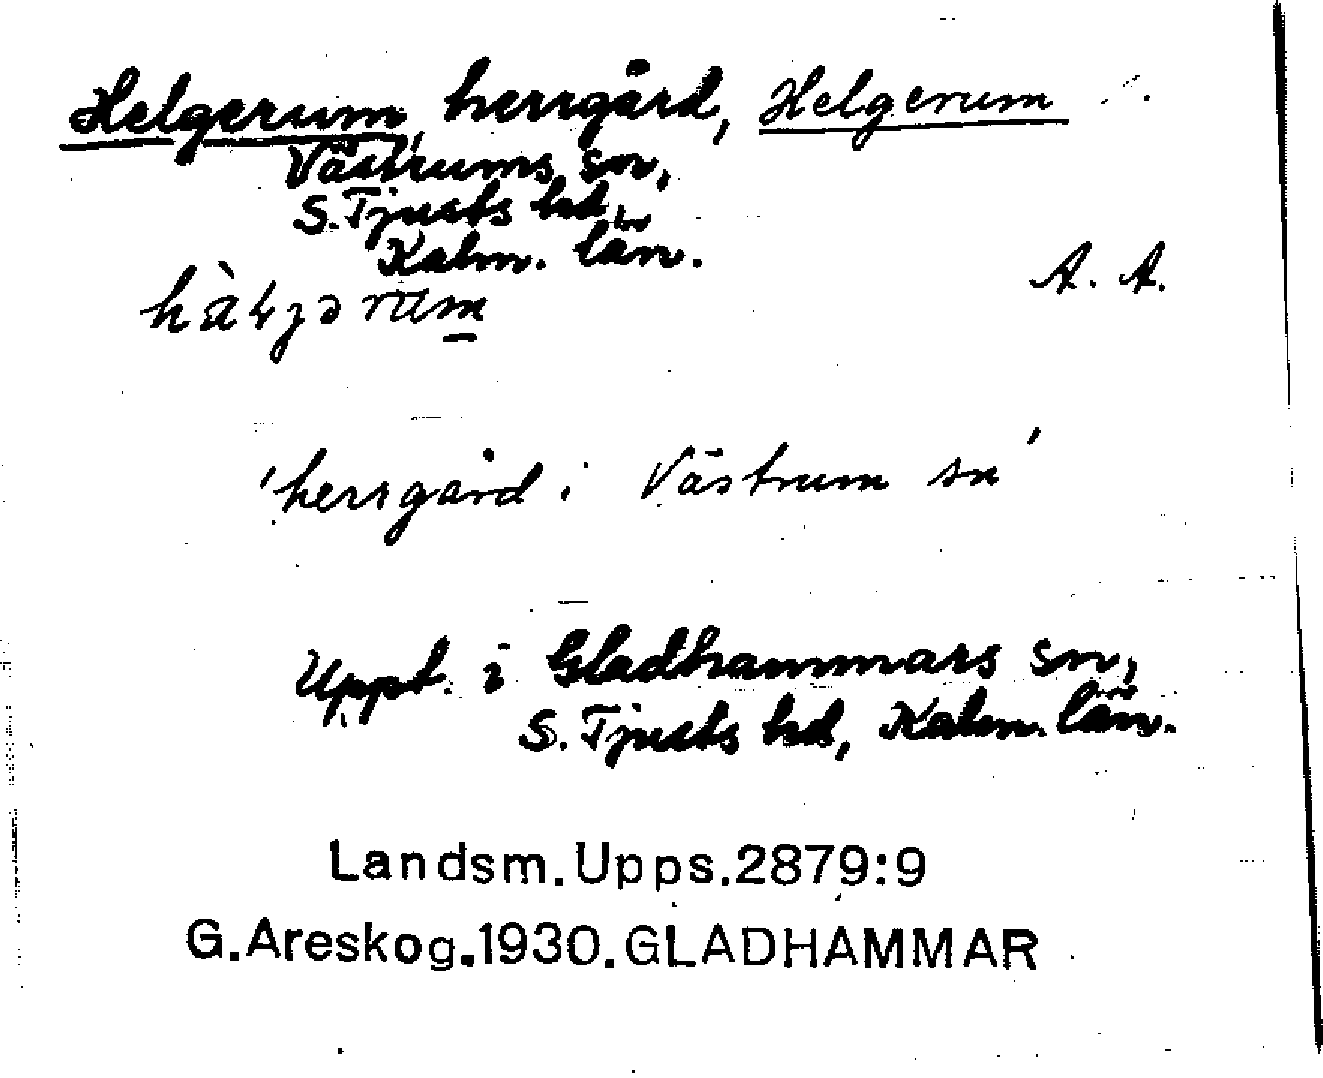 Helgerum, herrgård, Helgerum
Västrums sn,
S. Tjusts hd,
Kalm. län.
A. A.
'herrgård i Västrum sn'
Uppt. i Gladhammars sn,
S. Tjusts hd, Kalm. län.
Landsm.Upps.2879:9
G.Areskog.1930.GLADHAMMAR